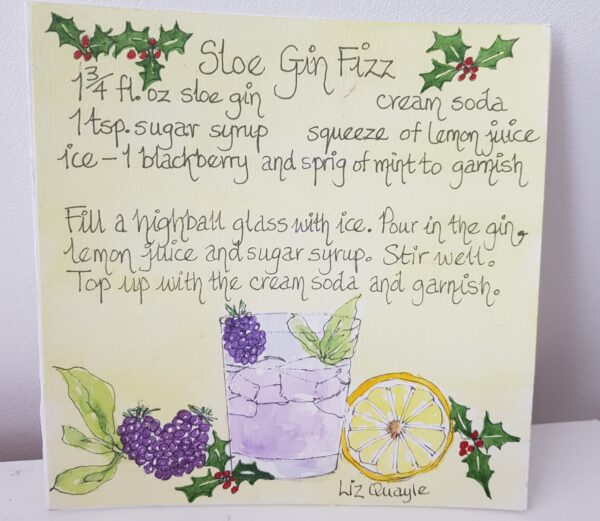 Sloe Gin Fizz
1 3/4 fl. oz sloe gin cream soda
1 tsp. sugar syrup squeeze of lemon juice
ice - 1 blackberry and sprig of mint to garnish
Fill a highball glass with ice. Pour in the gin,
lemon juice and sugar syrup. Stir well.
Top up with the cream soda and garnish.
Liz Quayle